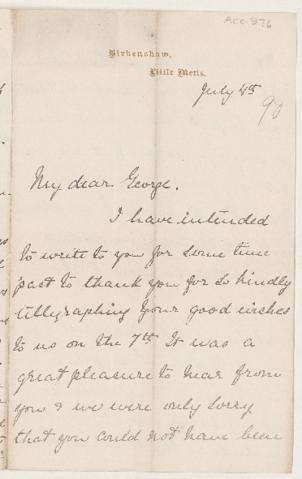 Acc 876
Birkenshaw,
Little Metis.
July 4th
90
My dear George.
I have intended
to write to you for some time
past to thank you for so kindly
tellegraphing your good wishes
to us on the 7th It was a
great pleasure to hear from
you & we were only sorry
that you could not have been